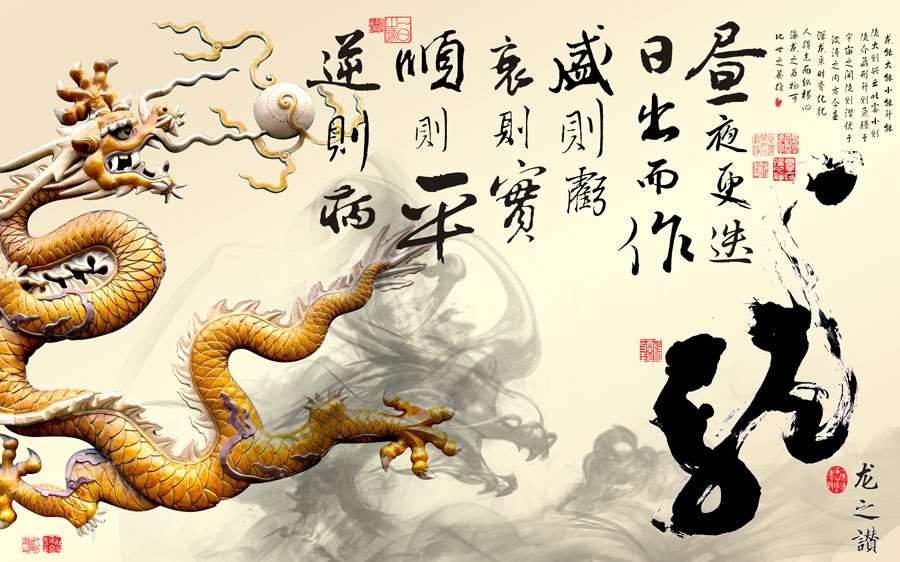 龙能大能小能升能
隐大则兴云吐雾小则
隐介藏形升则飞腾于
宇宙之间隐则潜伏于
波涛之内方今春
深龙乘时变化犹
人得志而纵横四
海龙之为物可
比世之英雄
龙
龙之讚
昼夜更迭
日出而作
盛則虧
衰則實
順則平
逆則病